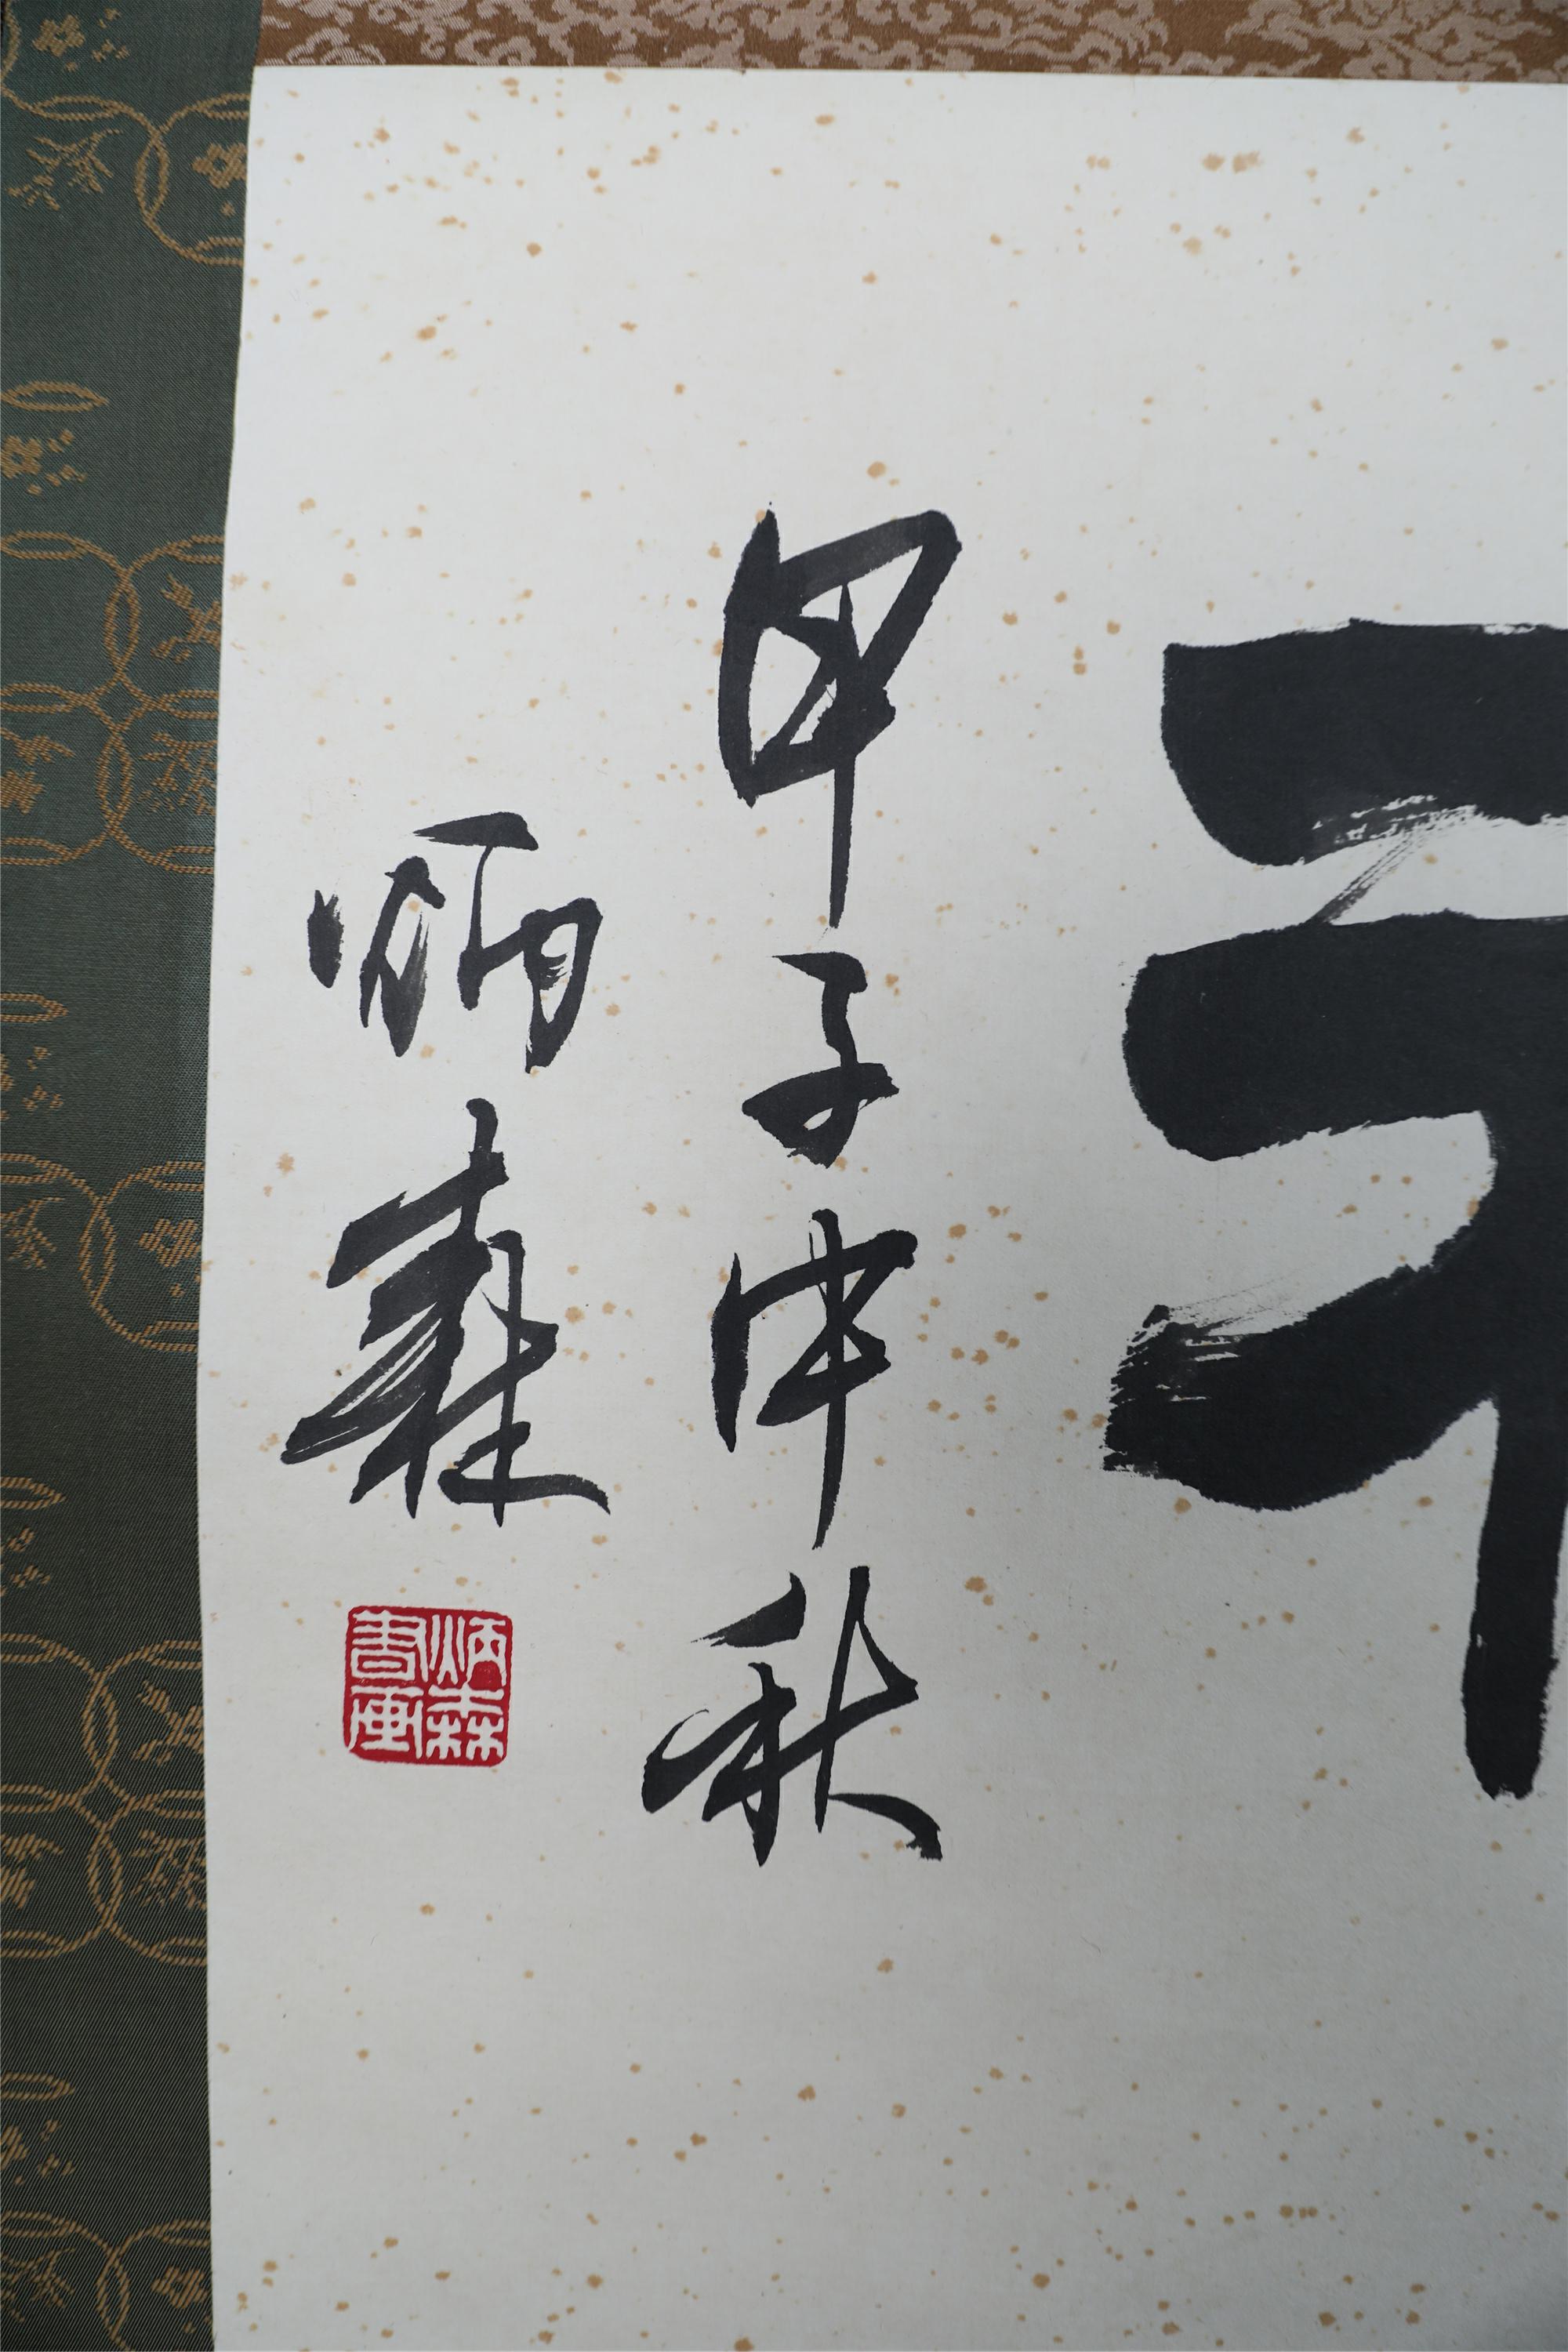 甲子中秋
炳森
炳森書画